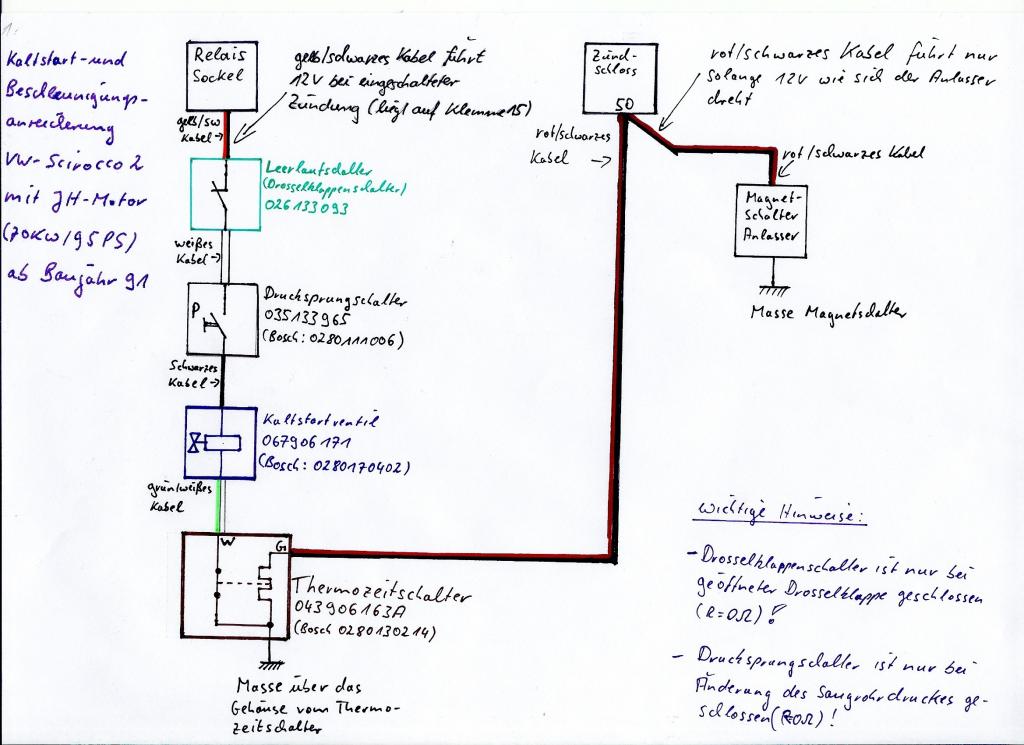 1.
Kaltstart- und
Beschleunigungs-
anreicherung
VW-Scirocco 2
mit JH-Motor
(70KW/95PS)
ab Baujahr 91
Relais
Sockel
gelb/schwarzes Kabel führt
12V bei eingeschalteter
Zündung (liegt auf Klemme 15)
gelb/sw
Kabel→
Leerlaufschalter
(Drosselklappenschalter)
026133093
weißes
Kabel→
P
Drucksprungschalter
035133965
(Bosch: 0280111006)
Schwarzes
Kabel→
Kaltstartventil
067906171
(Bosch: 0280170402)
grün/weißes
Kabel
W
G
Thermozeitschalter
043906163A
(Bosch 0280130214)
Masse über das
Gehäuse vom Thermo-
zeitschalter
Zünd-
schloss
50
rot/schwarzes Kabel führt nur
solange 12V wie sich der Anlasser
dreht
rot/schwarzes
Kabel →
rot/schwarzes Kabel
Magnet-
Schalter
Anlasser
Masse Magnetschalter
wichtige Hinweise:
- Drosselklappenschalter ist nur bei
geöffneter Drosselklappe geschlossen
(R=0Ω)!
- Drucksprungschalter ist nur bei
Änderung des Saugrohrdruckes ge-
schlossen (R=0Ω)!